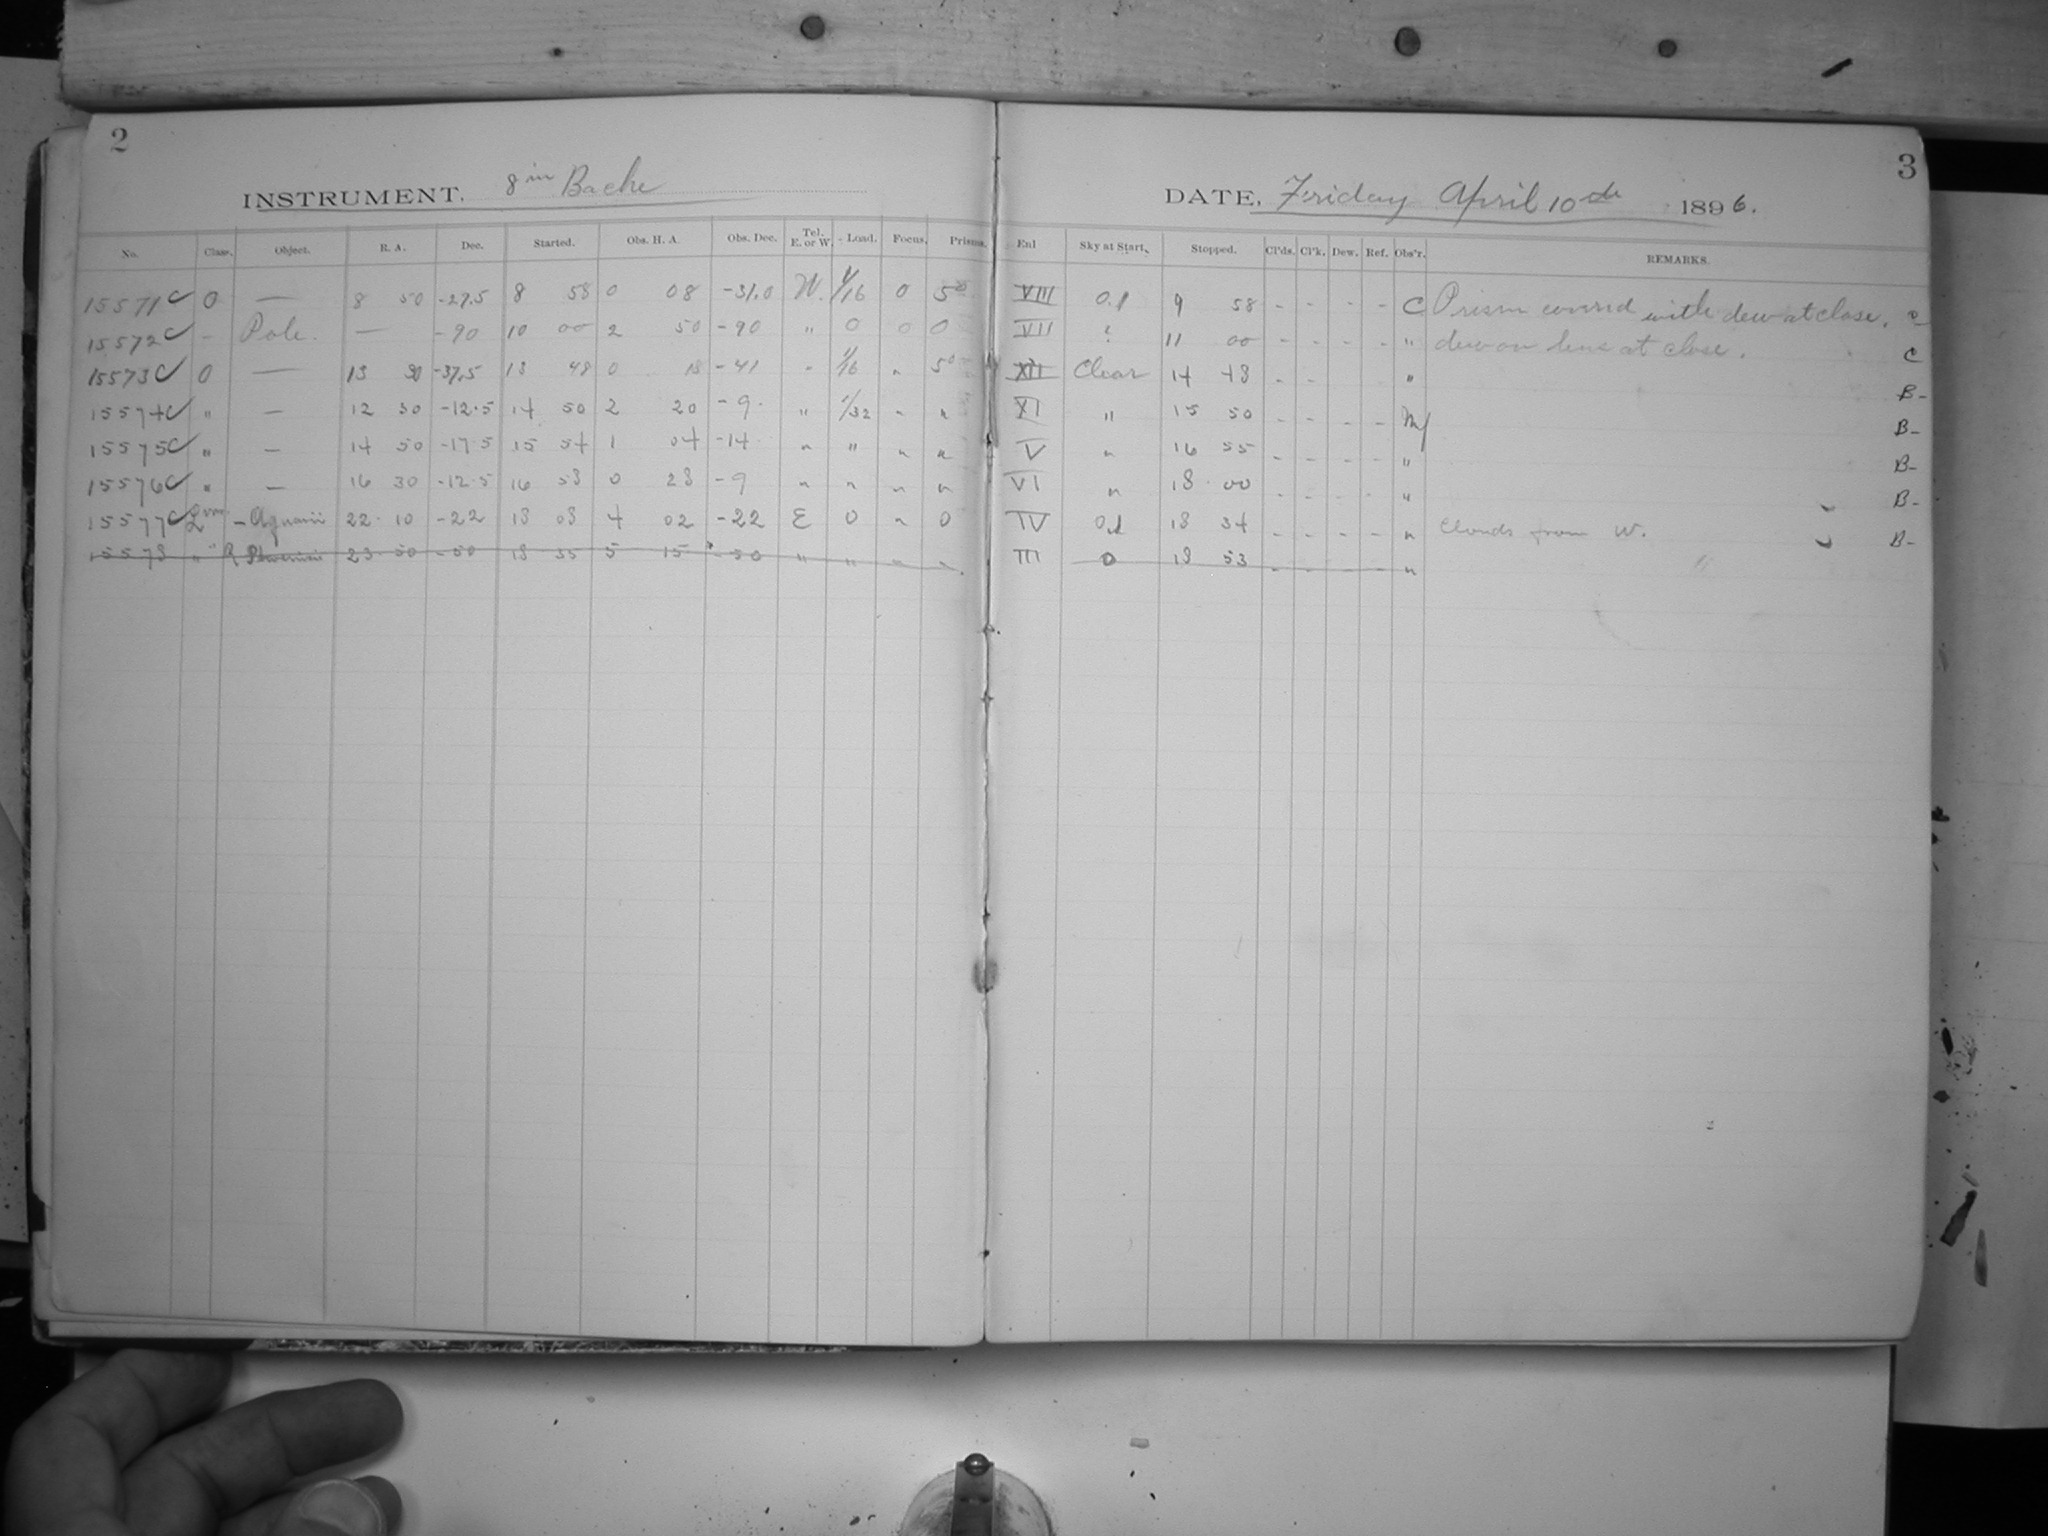 2
INSTRUMENT. 8 in Bache
No. Class. Object. R. A. Dec. Started. Obs. H. A. Obs. Dec. Tel. E. or W. Load. Focus. Prisms.
15571 C 0 — 8 50 -27.5 8 58 0 08 -31.0 W. 1/16 0 5
15572 C - Pole. — -90 10 00 2 50 -90 " 0 0 0
15573 C 0 — 13 30 -37.5 13 48 0 18 -41 " 1/16 " 5
15574 C " — 12 30 -12.5 14 50 2 20 -9 " 1/32 " "
15575 C " — 14 50 -17.5 15 54 1 04 -14 " " " "
15576 C " — 16 30 -12.5 16 58 0 28 -9 " " " "
15577 C - Aquarii 22 10 -22 18 08 4 02 -22 E 0 " 0
15578 " R 23 50 -50 18 35 5 15 -50 " " " "
3
DATE, Friday April 10th 1896.
Enl Sky at Start. Stopped. Cl'ds. Cl'k. Dew. Ref. Obs'r. REMARKS.
VIII 0.1 9 58 - - - - C Prism covered with dew at close. C
VII ? 11 00 - - - - " dew on lens at close. C
XII Clear 14 48 - - " B-
XI " 15 50 - - - - M B-
V " 16 55 - - - - " B-
VI " 18 00 - - - - " B-
IV 0.1 18 34 - - - - " Clouds from W. B-
III 0 18 53 - - - - "